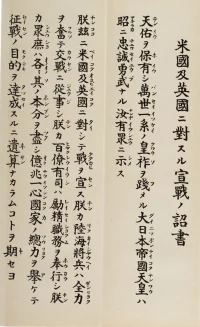 米國及英國ニ對スル宣戰ノ詔書
天佑ヲ保有シ萬世一系ノ皇祚ヲ踐メル大日本帝國天皇ハ
昭ニ忠誠勇武ナル汝有眾ニ示ス
朕茲ニ米國及英國ニ對シテ戰ヲ宣ス朕カ陸海將兵ハ全力
ヲ奮テ交戰ニ從事シ朕カ百僚有司ハ勵精職務ヲ奉行シ朕
カ眾庶ハ各其ノ本分ヲ盡シ億兆一心國家ノ總力ヲ擧ケテ
征戰ノ目的ヲ達成スルニ遺算ナカラムコトヲ期セヨ